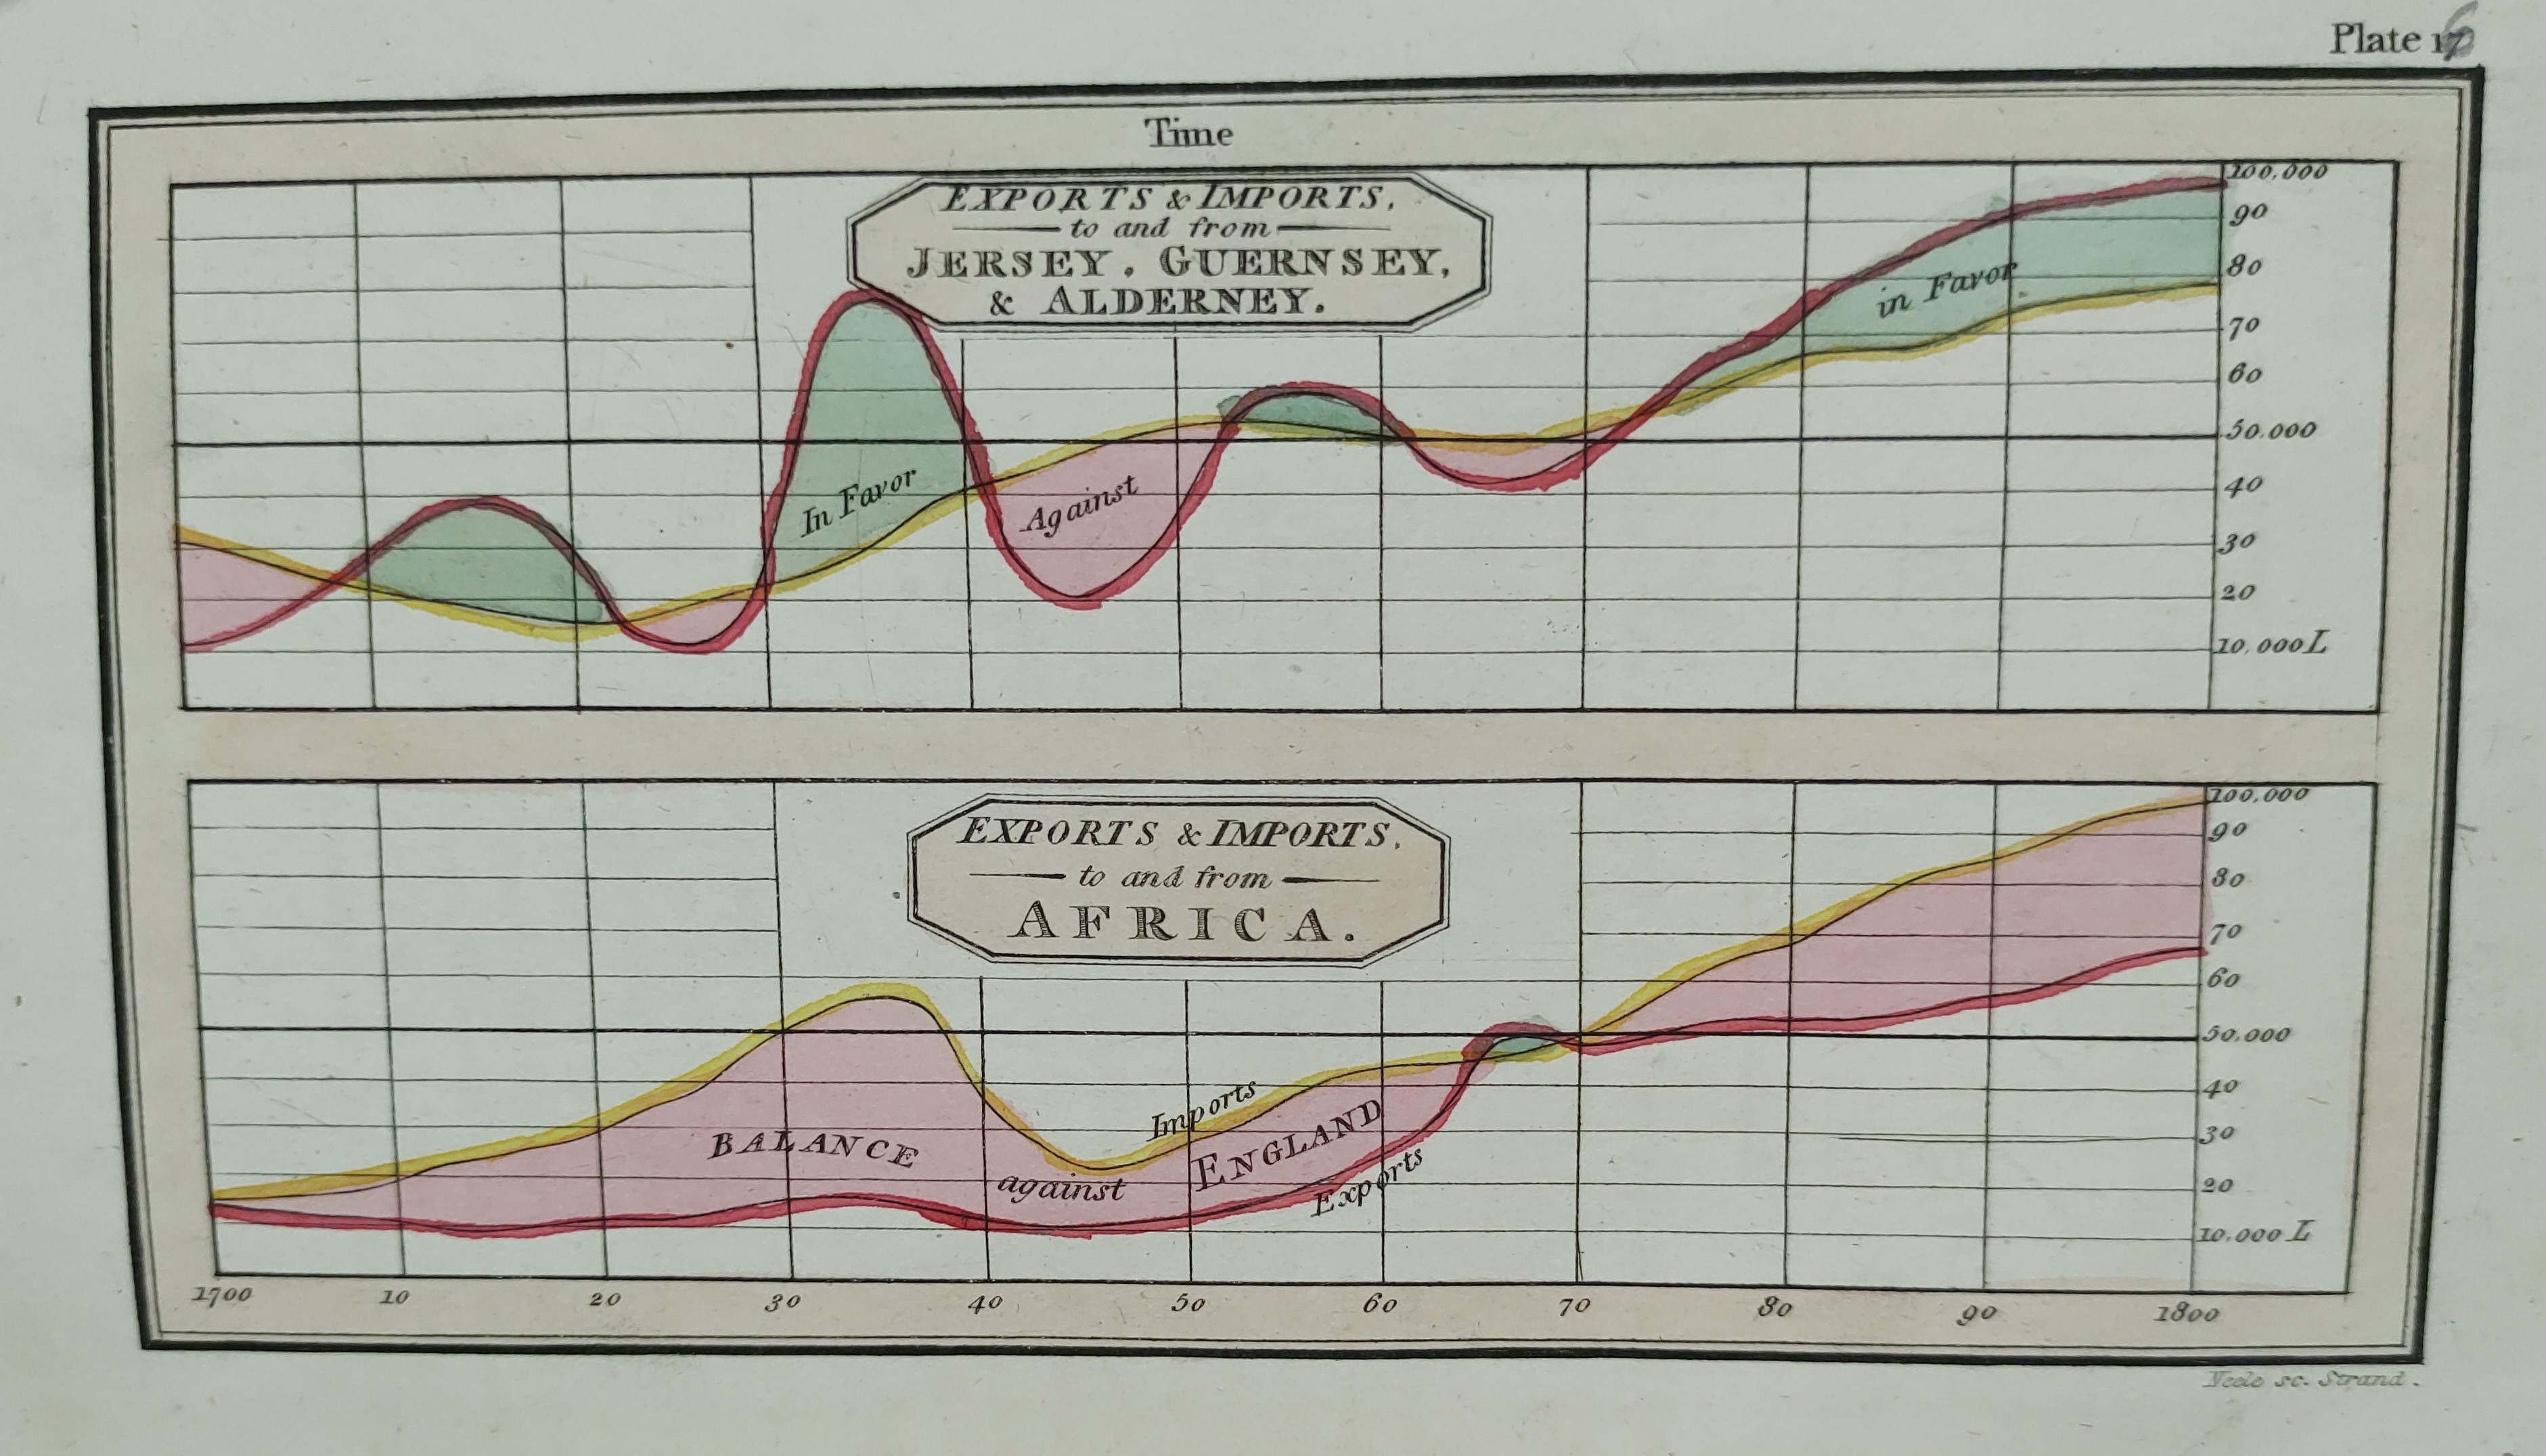 Plate 16
Time
EXPORTS & IMPORTS,
to and from
JERSEY, GUERNSEY,
& ALDERNEY.
100,000
90
80
70
60
50.000
40
30
20
10.000 L
in Favor
In Favor
Against
EXPORTS & IMPORTS,
to and from
AFRICA.
100,000
90
80
70
60
50,000
40
30
20
10.000 L
Imports
BALANCE
against
ENGLAND
Exports
1700 10 20 30 40 50 60 70 80 90 1800
Neele sc. Strand.